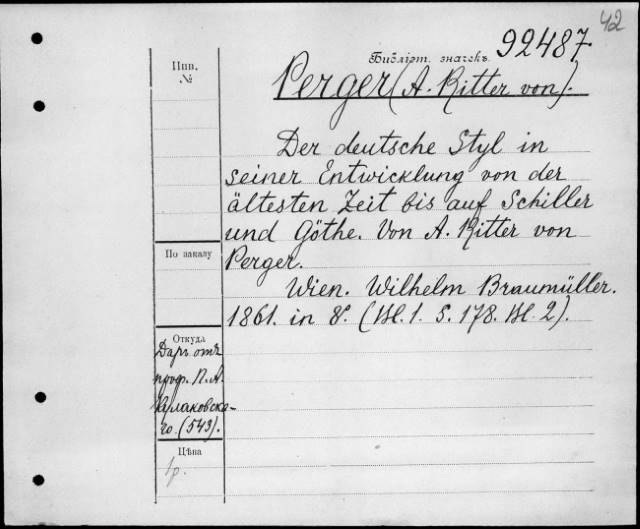 42
Библіот. значекъ.
92487
Инв.
№
Perger (A. Ritter von).
Der deutsche Styl in
seiner Entwicklung von der
ältesten Zeit bis auf Schiller
und Göthe. Von A. Ritter von
Perger.
Wien. Wilhelm Braumüller.
1861. in 8°. (Bl. 1. S. 178. Bl. 2).
По заказу
Откуда
Даръ отъ
проф. П. А.
го. (543).
Цѣна
1р.